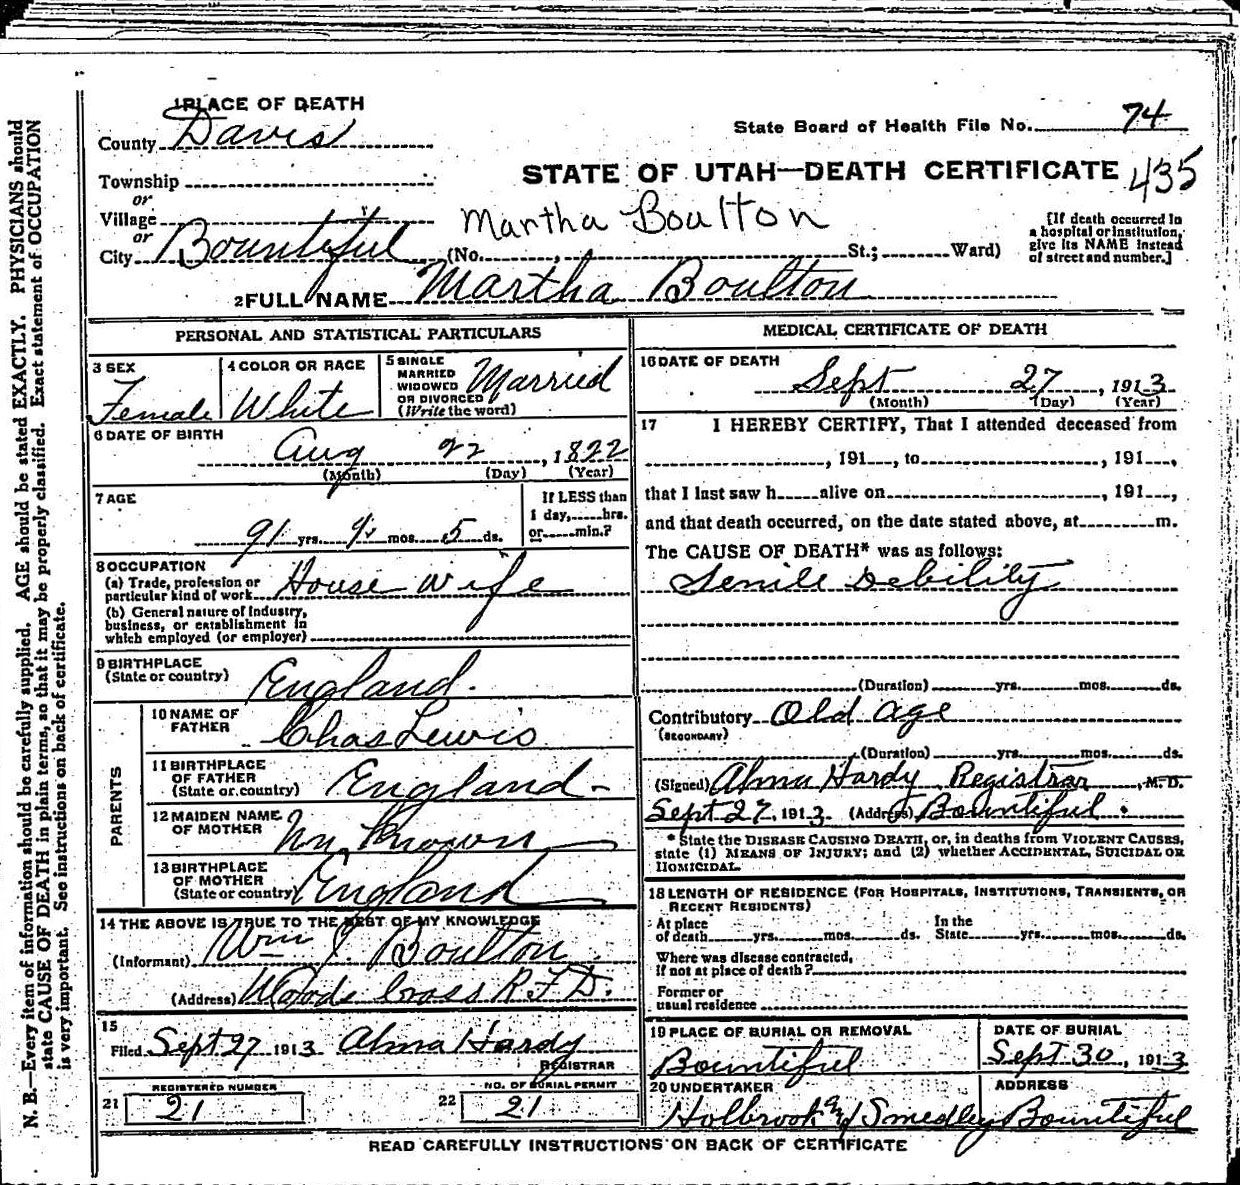 1 PLACE OF DEATH
County Davis
State Board of Health File No. 74
Township
STATE OF UTAH—DEATH CERTIFICATE 435
or
Village
Martha Boulton
or
City Bountiful (No. , St.; Ward)
[If death occurred in
a hospital or institution,
give its NAME instead
of street and number.]
2 FULL NAME Martha Boulton
PERSONAL AND STATISTICAL PARTICULARS
3 SEX
Female
4 COLOR OR RACE
White
5 SINGLE
MARRIED
WIDOWED
OR DIVORCED
(Write the word)
Married
6 DATE OF BIRTH
Aug 22, 1822
(Month) (Day) (Year)
7 AGE
91 yrs. 1 mos. 5 ds.
If LESS than
1 day, hrs.
or min.?
8 OCCUPATION
(a) Trade, profession or
particular kind of work House wife
(b) General nature of industry,
business, or establishment in
which employed (or employer)
9 BIRTHPLACE
(State or country) England.
PARENTS
10 NAME OF
FATHER Chas Lewis
11 BIRTHPLACE
OF FATHER
(State or country) England
12 MAIDEN NAME
OF MOTHER Un Known
13 BIRTHPLACE
OF MOTHER
(State or country) England
14 THE ABOVE IS TRUE TO THE BEST OF MY KNOWLEDGE
(Informant) Wm J. Boulton
(Address) Woods Cross R.F.D.
15
Filed Sept 27 1913 Alma Hardy
REGISTRAR
REGISTERED NUMBER
21 21
NO. OF BURIAL PERMIT
22 21
MEDICAL CERTIFICATE OF DEATH
16 DATE OF DEATH
Sept 27, 1913
(Month) (Day) (Year)
17 I HEREBY CERTIFY, That I attended deceased from
, 191 , to , 191 ,
that I last saw h alive on , 191 ,
and that death occurred, on the date stated above, at m.
The CAUSE OF DEATH* was as follows:
Senile Debility
(Duration) yrs. mos. ds.
Contributory Old age
(SECONDARY)
(Duration) yrs. mos. ds.
(Signed) Alma Hardy Registrar, M.D.
Sept 27, 1913 (Address) Bountiful.
* State the DISEASE CAUSING DEATH, or, in deaths from VIOLENT CAUSES,
state (1) MEANS OF INJURY; and (2) whether ACCIDENTAL, SUICIDAL OR
HOMICIDAL.
18 LENGTH OF RESIDENCE (FOR HOSPITALS, INSTITUTIONS, TRANSIENTS, OR
RECENT RESIDENTS)
At place
of death yrs. mos. ds.
In the
State yrs. mos. ds.
Where was disease contracted,
if not at place of death?
Former or
usual residence
19 PLACE OF BURIAL OR REMOVAL
Bountiful
DATE OF BURIAL
Sept 30, 1913
20 UNDERTAKER
Holbrook and Smedley
ADDRESS
Bountiful
READ CAREFULLY INSTRUCTIONS ON BACK OF CERTIFICATE
N. B.—Every item of information should be carefully supplied. AGE should be stated EXACTLY. PHYSICIANS should
state CAUSE OF DEATH in plain terms, so that it may be properly classified. Exact statement of OCCUPATION
is very important. See instructions on back of certificate.